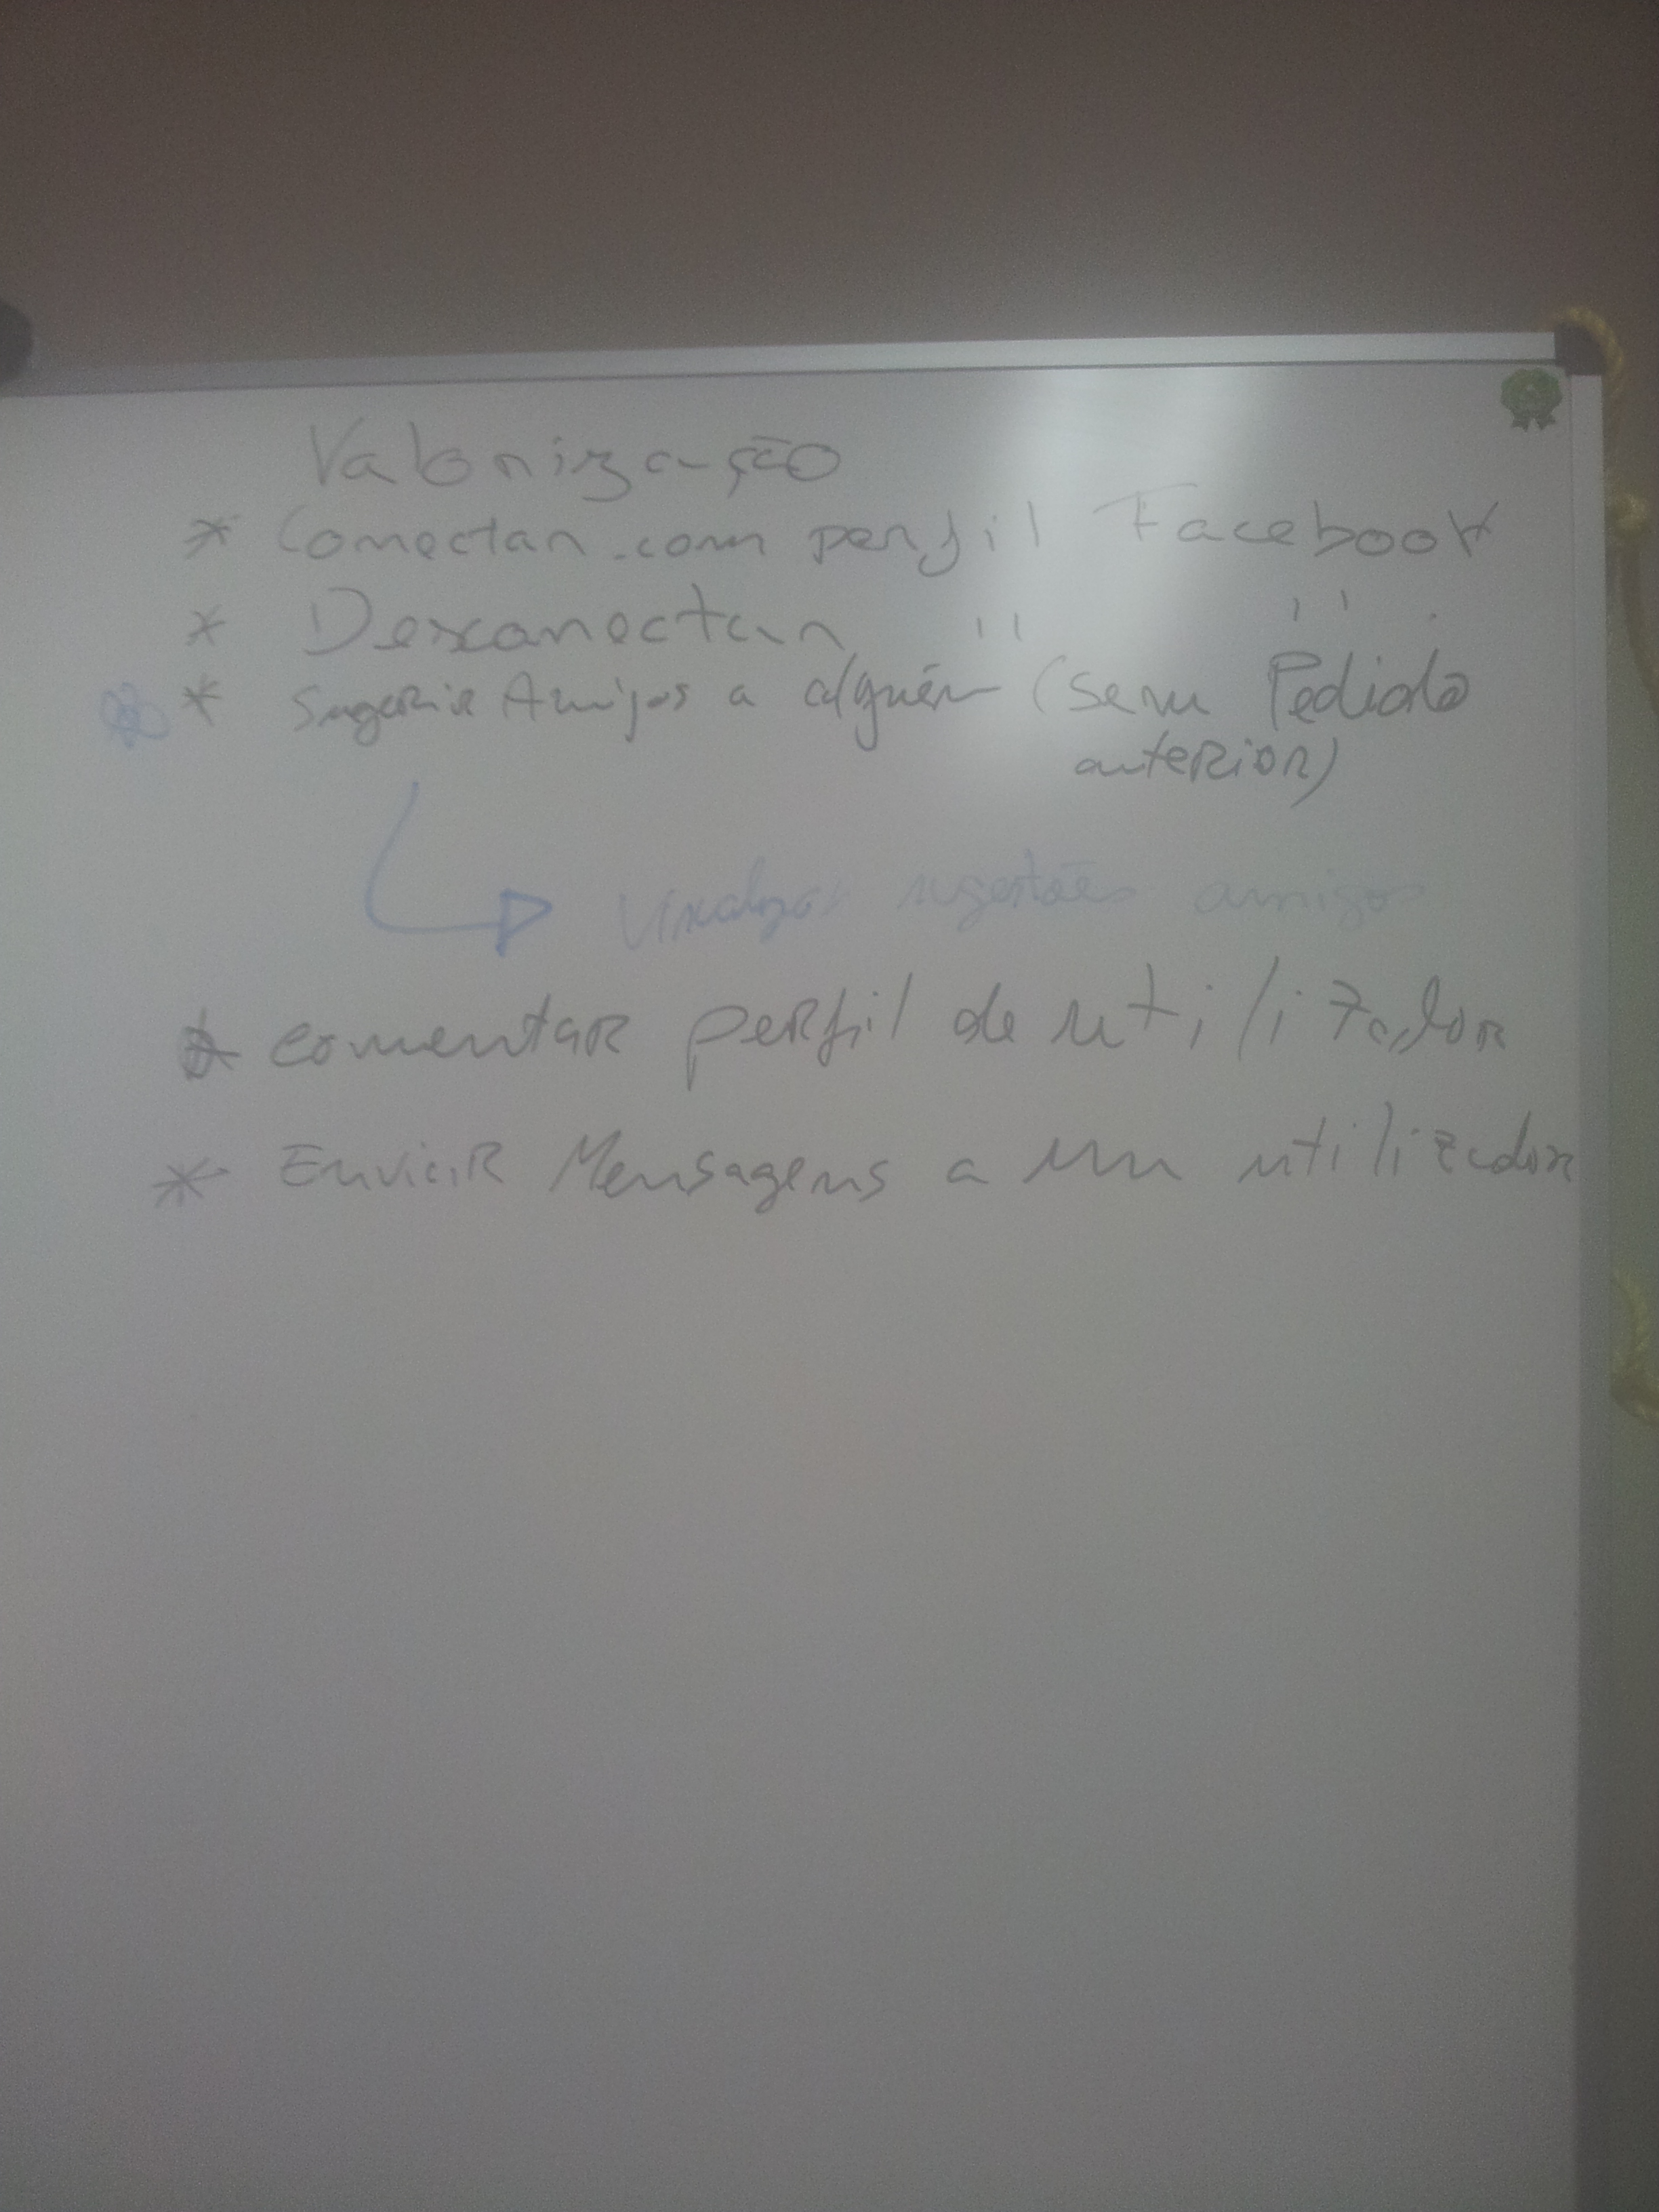 Valorização
* Conectar com perfil Facebook
* Desconectar " "
* Sugerir Amigos a alguém (sem Pedido
anterior)
Visualizar sugestões amigos
* comentar perfil de utilizador
* Enviar Mensagens a um utilizador